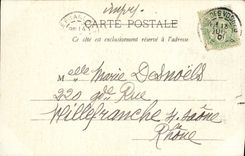 CARTE POSTALE
Ce côté est exclusivement réservé à l'adresse
Melle Marie Desnoëls
220 gde Rue
Willefranche s/ Saône
Rhône